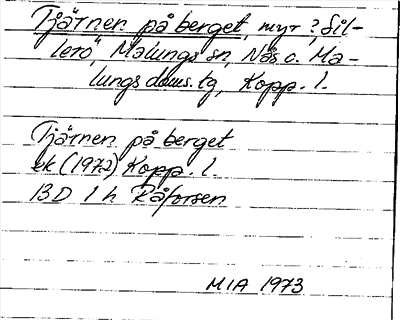 Tjärnen på berget, myr? Sil-
lerö, Malungs sn, Nås o. Ma-
lungs doms.tg, Kopp. l.
Tjärnen på berget
ek (1972) Kopp. l.
13 D 1 h Råforsen
MIA 1973